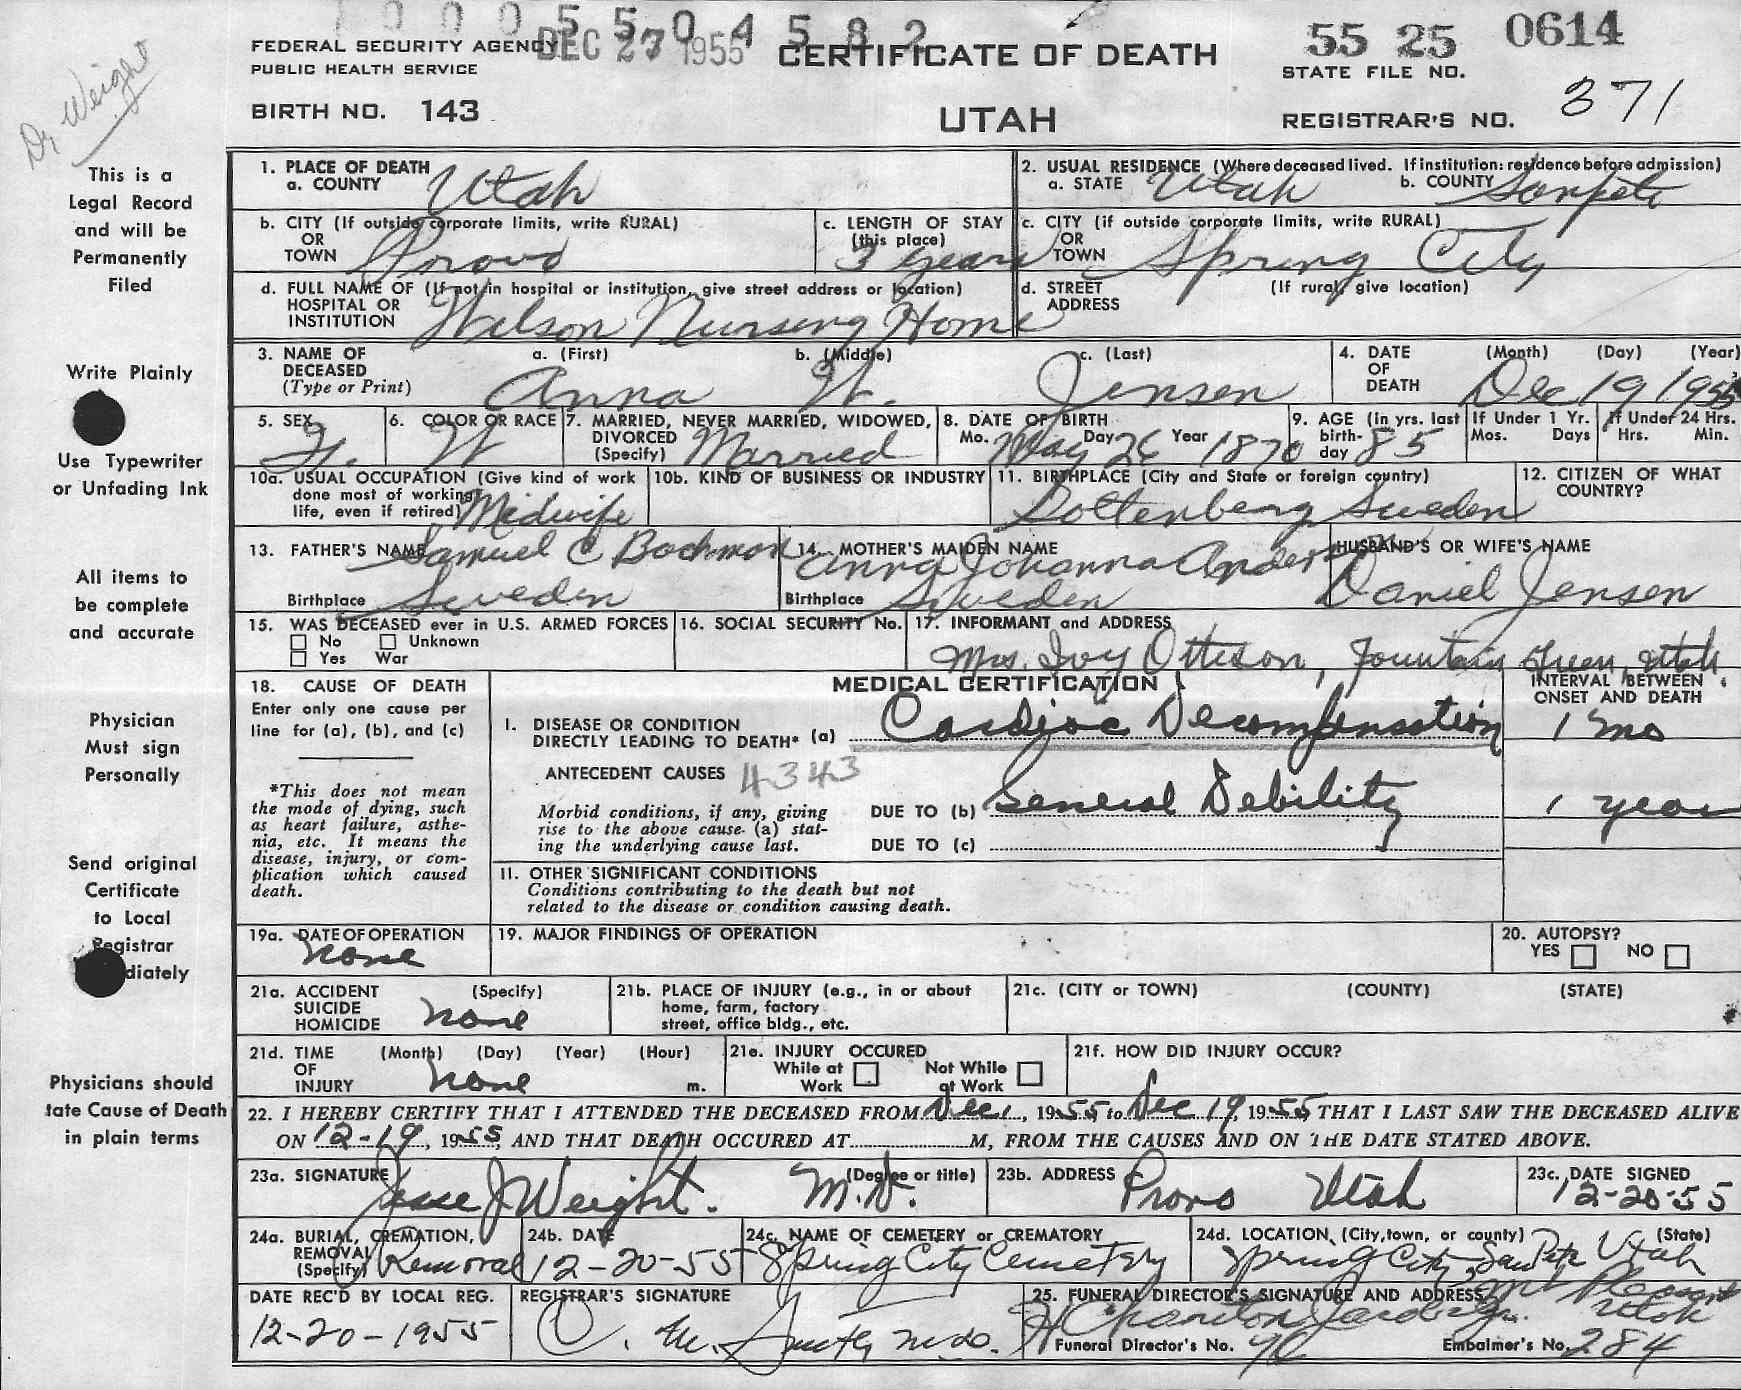 Dr Weight
DEC 27 1955
FEDERAL SECURITY AGENCY
PUBLIC HEALTH SERVICE
CERTIFICATE OF DEATH
55 25 0614
STATE FILE NO.
BIRTH NO. 143
UTAH
REGISTRAR'S NO. 371
This is a
Legal Record
and will be
Permanently
Filed
Write Plainly
Use Typewriter
or Unfading Ink
All items to
be complete
and accurate
Physician
Must sign
Personally
Send original
Certificate
to Local
Registrar
diately
Physicians should
tate Cause of Death
in plain terms
1. PLACE OF DEATH
a. COUNTY Utah
2. USUAL RESIDENCE (Where deceased lived. If institution: residence before admission)
a. STATE Utah b. COUNTY Sanpete
b. CITY (If outside corporate limits, write RURAL)
OR
TOWN Provo
c. LENGTH OF STAY
(this place)
3 years
c. CITY (if outside corporate limits, write RURAL)
OR
TOWN Spring City
d. FULL NAME OF (If not in hospital or institution, give street address or location)
HOSPITAL OR
INSTITUTION Wilson Nursing Home
d. STREET (If rural, give location)
ADDRESS
3. NAME OF DECEASED
(Type or Print)
a. (First) b. (Middle) c. (Last)
Anna W. Jensen
4. DATE OF DEATH (Month) (Day) (Year)
Dec 19 1955
5. SEX
F.
6. COLOR OR RACE
W
7. MARRIED, NEVER MARRIED, WIDOWED,
DIVORCED
(Specify) Married
8. DATE OF BIRTH
Mo. May Day 26 Year 1870
9. AGE (in yrs. last
birth-
day 85
If Under 1 Yr.
Mos. Days
If Under 24 Hrs.
Hrs. Min.
10a. USUAL OCCUPATION (Give kind of work
done most of working
life, even if retired) Midwife
10b. KIND OF BUSINESS OR INDUSTRY
11. BIRTHPLACE (City and State or foreign country)
Gottenberg Sweden
12. CITIZEN OF WHAT
COUNTRY?
13. FATHER'S NAME Samuel C Backman
Birthplace Sweden
14. MOTHER'S MAIDEN NAME
Anna Johanna
Birthplace Sweden
HUSBAND'S OR WIFE'S NAME
Daniel Jensen
15. WAS DECEASED ever in U.S. ARMED FORCES
No Unknown
Yes War
16. SOCIAL SECURITY No.
17. INFORMANT and ADDRESS
Mrs. Ivy Otteson, Fountain Green, Utah
18. CAUSE OF DEATH
Enter only one cause per
line for (a), (b), and (c)
*This does not mean
the mode of dying, such
as heart failure, asthe-
nia, etc. It means the
disease, injury, or com-
plication which caused
death.
MEDICAL CERTIFICATION
INTERVAL BETWEEN
ONSET AND DEATH
I. DISEASE OR CONDITION
DIRECTLY LEADING TO DEATH* (a) Cardiac Decompensation 1 mo
ANTECEDENT CAUSES 4343
Morbid conditions, if any, giving
rise to the above cause (a) stat-
ing the underlying cause last.
DUE TO (b) General Debility 1 year
DUE TO (c)
11. OTHER SIGNIFICANT CONDITIONS
Conditions contributing to the death but not
related to the disease or condition causing death.
19a. DATE OF OPERATION
none
19. MAJOR FINDINGS OF OPERATION
20. AUTOPSY?
YES NO
21a. ACCIDENT (Specify)
SUICIDE
HOMICIDE none
21b. PLACE OF INJURY (e.g., in or about
home, farm, factory
street, office bldg., etc.
21c. (CITY or TOWN) (COUNTY) (STATE)
21d. TIME (Month) (Day) (Year) (Hour)
OF
INJURY none m.
21e. INJURY OCCURED
While at Work
Not While at Work
21f. HOW DID INJURY OCCUR?
22. I HEREBY CERTIFY THAT I ATTENDED THE DECEASED FROM Dec 1, 1955 to Dec 19, 1955 THAT I LAST SAW THE DECEASED ALIVE
ON 12-19, 1955, AND THAT DEATH OCCURED AT M, FROM THE CAUSES AND ON THE DATE STATED ABOVE.
23a. SIGNATURE (Degree or title)
Jesse J Weight. M.D.
23b. ADDRESS Provo Utah
23c. DATE SIGNED
12-20-55
24a. BURIAL, CREMATION,
REMOVAL
(Specify) Removal
24b. DATE
12-20-55
24c. NAME OF CEMETERY or CREMATORY
Spring City Cemetery
24d. LOCATION (City, town, or county) (State)
Spring City, San Pete Utah
DATE REC'D BY LOCAL REG.
12-20-1955
REGISTRAR'S SIGNATURE
25. FUNERAL DIRECTOR'S SIGNATURE AND ADDRESS
Mt Pleasant
Utah
Funeral Director's No.
Embalmer's No. 284